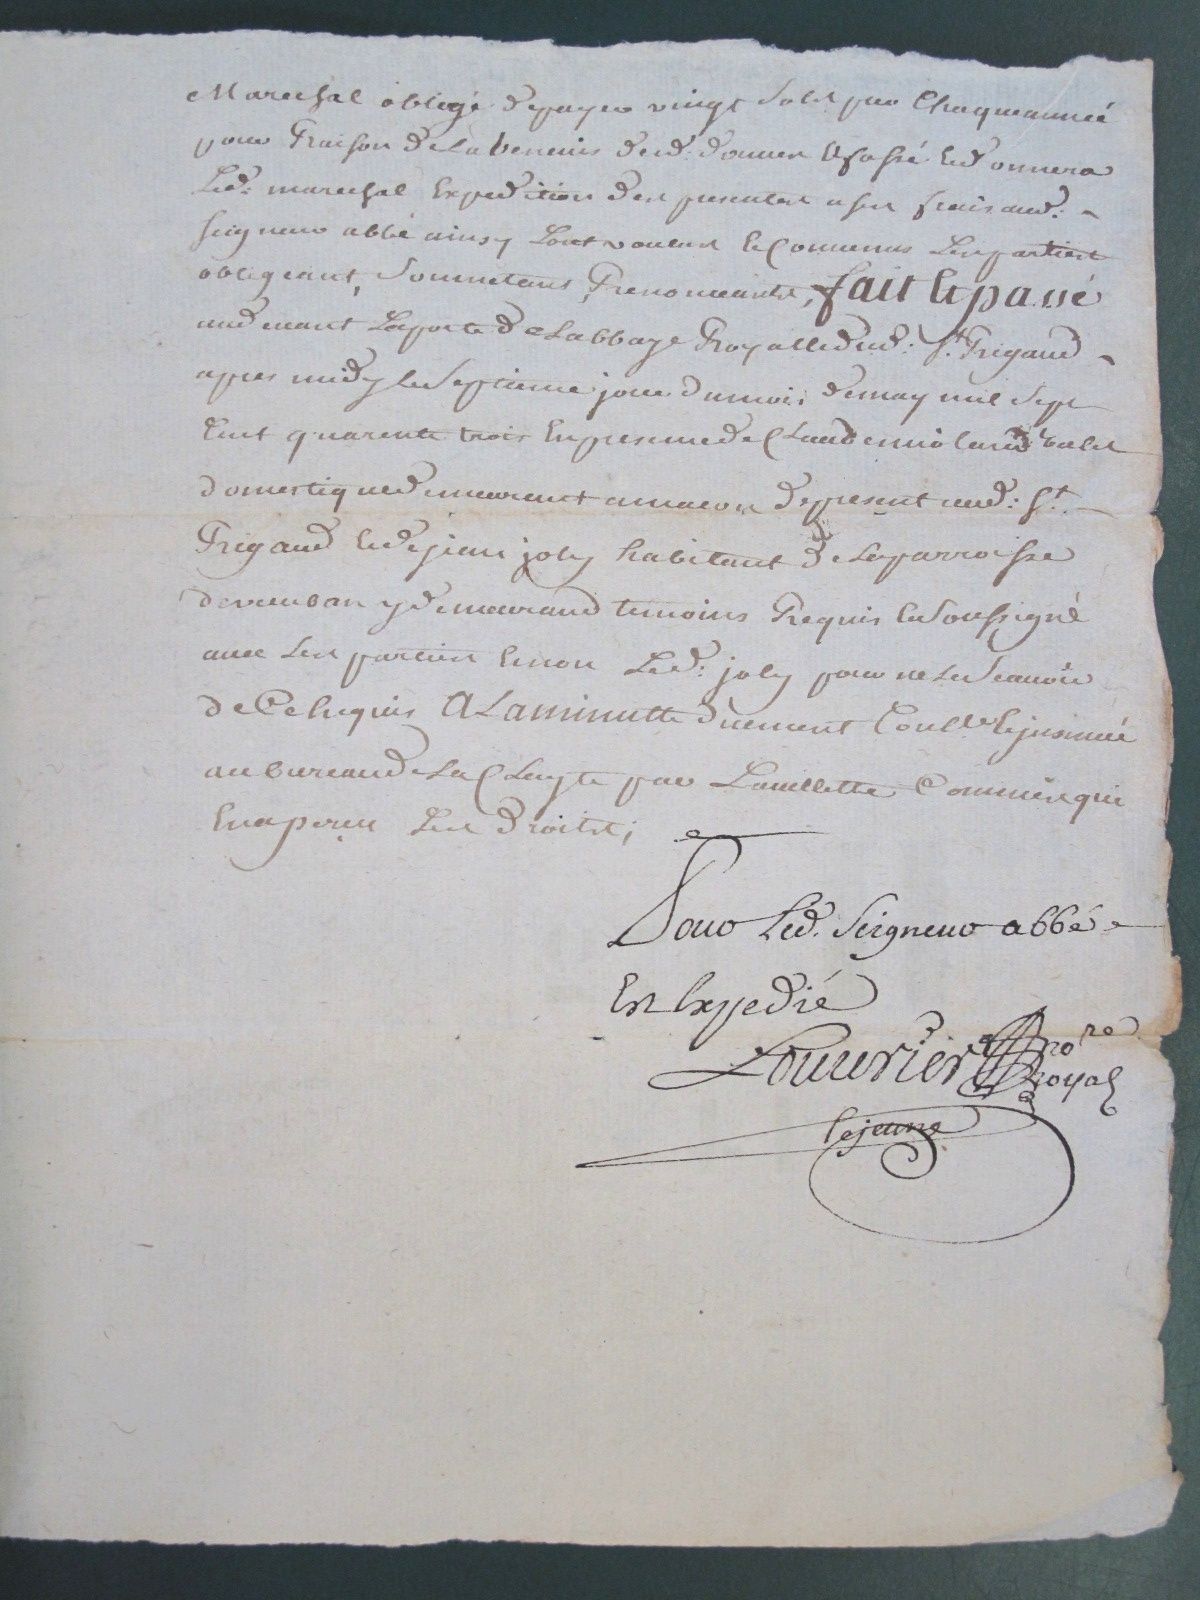 Marechal obligé de payer vingt sols par chaque année
pour raison de la benevis dud. donnera
Led: marechal Expedition des presentes a ses frais aud:
seigneur abbé ainsy Lont voulus & convenus Les parties
obligeant, soumetans, renonceants, fait & passé
au devant La porte de Labbaye Royalle dud: St Rigaud
apres midy le septieme jour du mois de may mil sept
Cent quarente trois En presence de Claude valet
domestique demeurant a macon de present aud: St.
Rigaud & de jean joly habitant de La parroisse
de y demeurand temoins Requis Le soussigné
avec Les parties & non Led: joly pour ne Le scavoir
de Ce Enquis A La minutte duement Conllé & jnsinué
au bureau de La Clayte par Lauillette Commis qui
En a perçu Les droits;
Pour Led. Seigneur abbé
Est Expedié
Louurier no^re
royal
lejeune